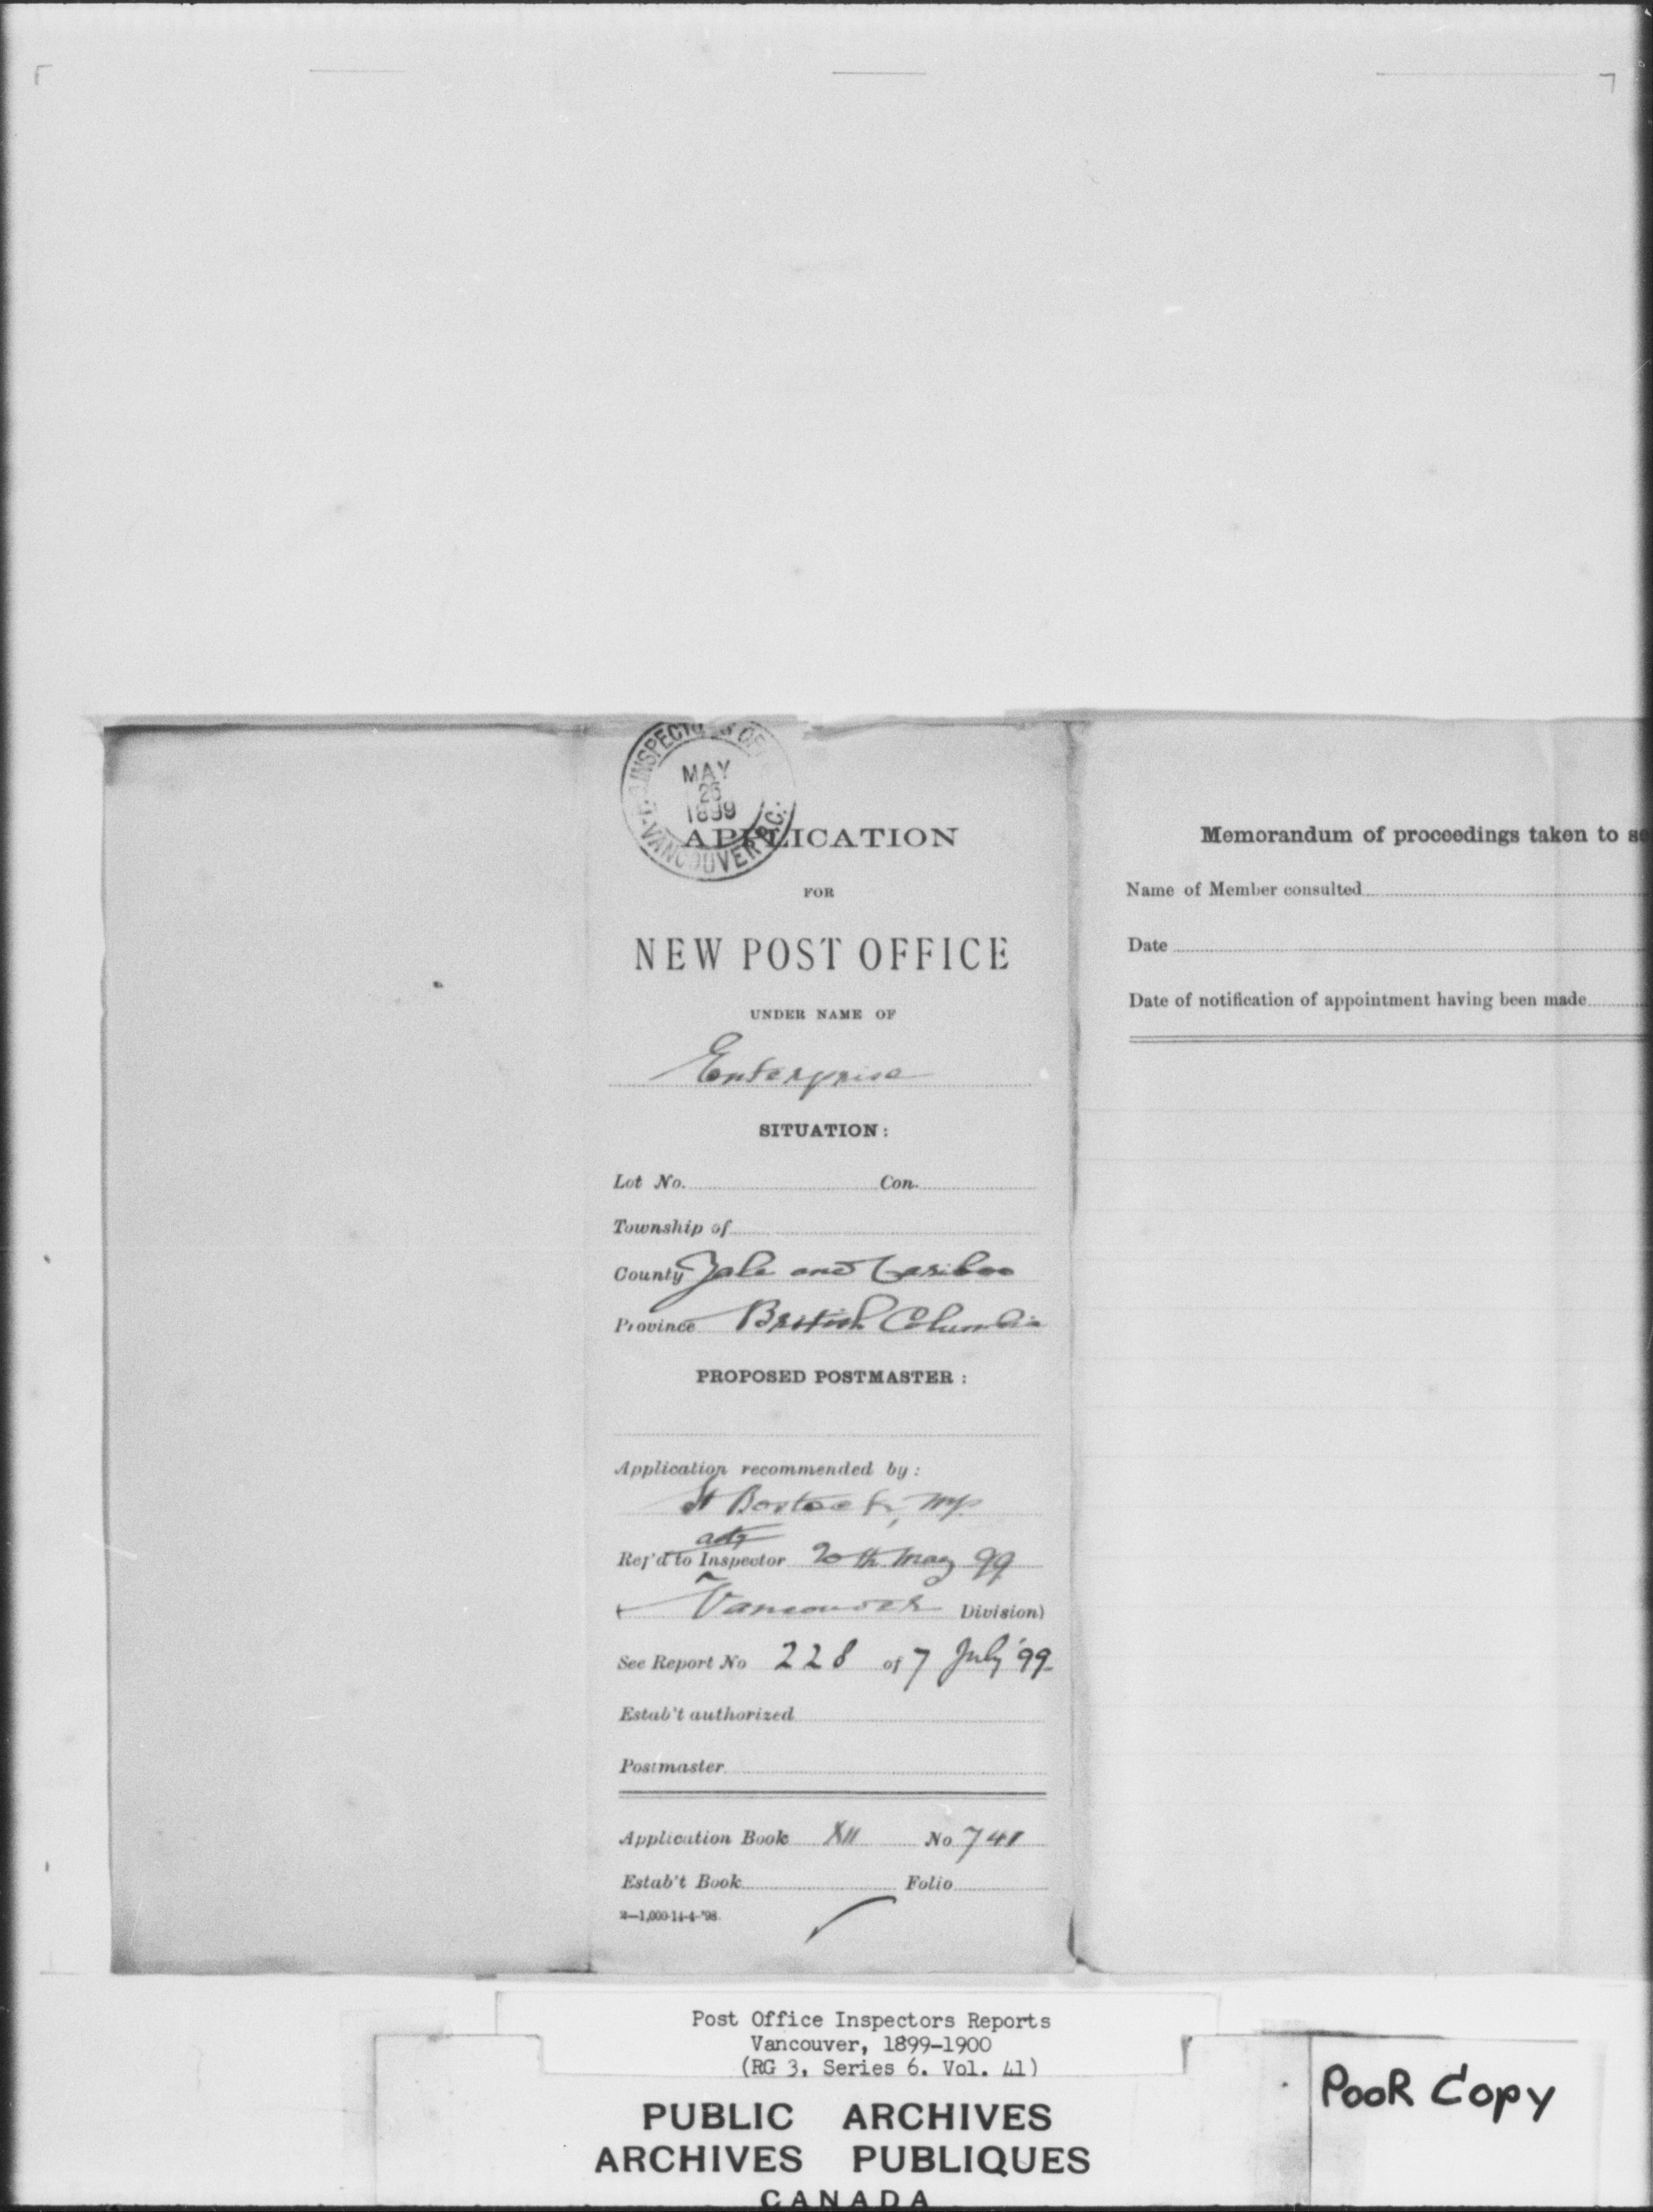 P.O. INSPECTOR'S OF
MAY
26
1899
VANCOUVER B.C.
APPLICATION
FOR
NEW POST OFFICE
UNDER NAME OF
Enterprise
SITUATION:
Lot No. Con.
Township of
County Yale and Cariboo
Province British Columbia
PROPOSED POSTMASTER:
Application recommended by:
H Bostock, MP.
actg
Ref'd to Inspector 20th May 99
( Vancouver Division)
See Report No 228 of 7 July '99
Estab't authorized
Postmaster
Application Book XII No 741
Estab't Book Folio
2—1,000-14-4-'98.
Memorandum of proceedings taken to se
Name of Member consulted
Date
Date of notification of appointment having been made
Post Office Inspectors Reports
Vancouver, 1899-1900
(RG 3, Series 6. Vol. 41)
PUBLIC ARCHIVES
ARCHIVES PUBLIQUES
CANADA
POOR COPY